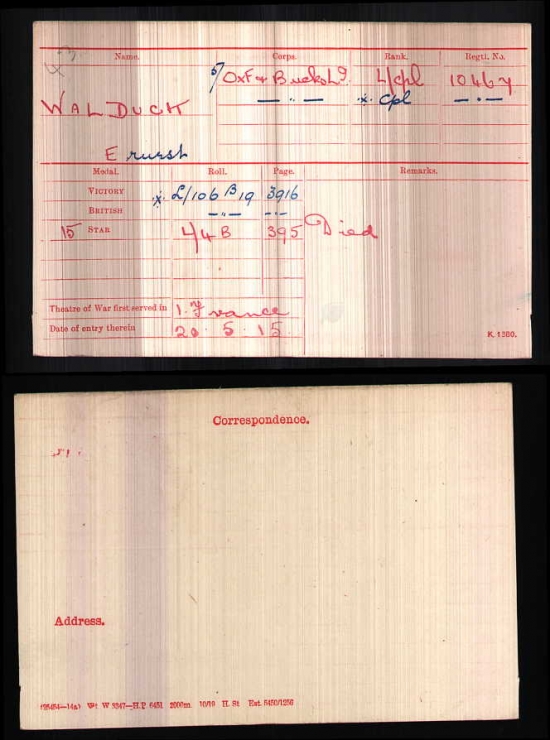 Name. Corps. Rank. Regtl. No.
5/ Oxf & Bucks L.I. L/Cpl 10467
WALDUCK — " — x. Cpl — " —
Ernest
Medal. Roll. Page. Remarks.
VICTORY x. L/106 B 19 3916
BRITISH — " — — " —
15 STAR L/4 B 395 Died
Theatre of War first served in 1. France
Date of entry therein 20. 5. 15
K. 1380.
Correspondence.
Address.
W 3347—H.P. 6451 2000m. 10/19 H. St